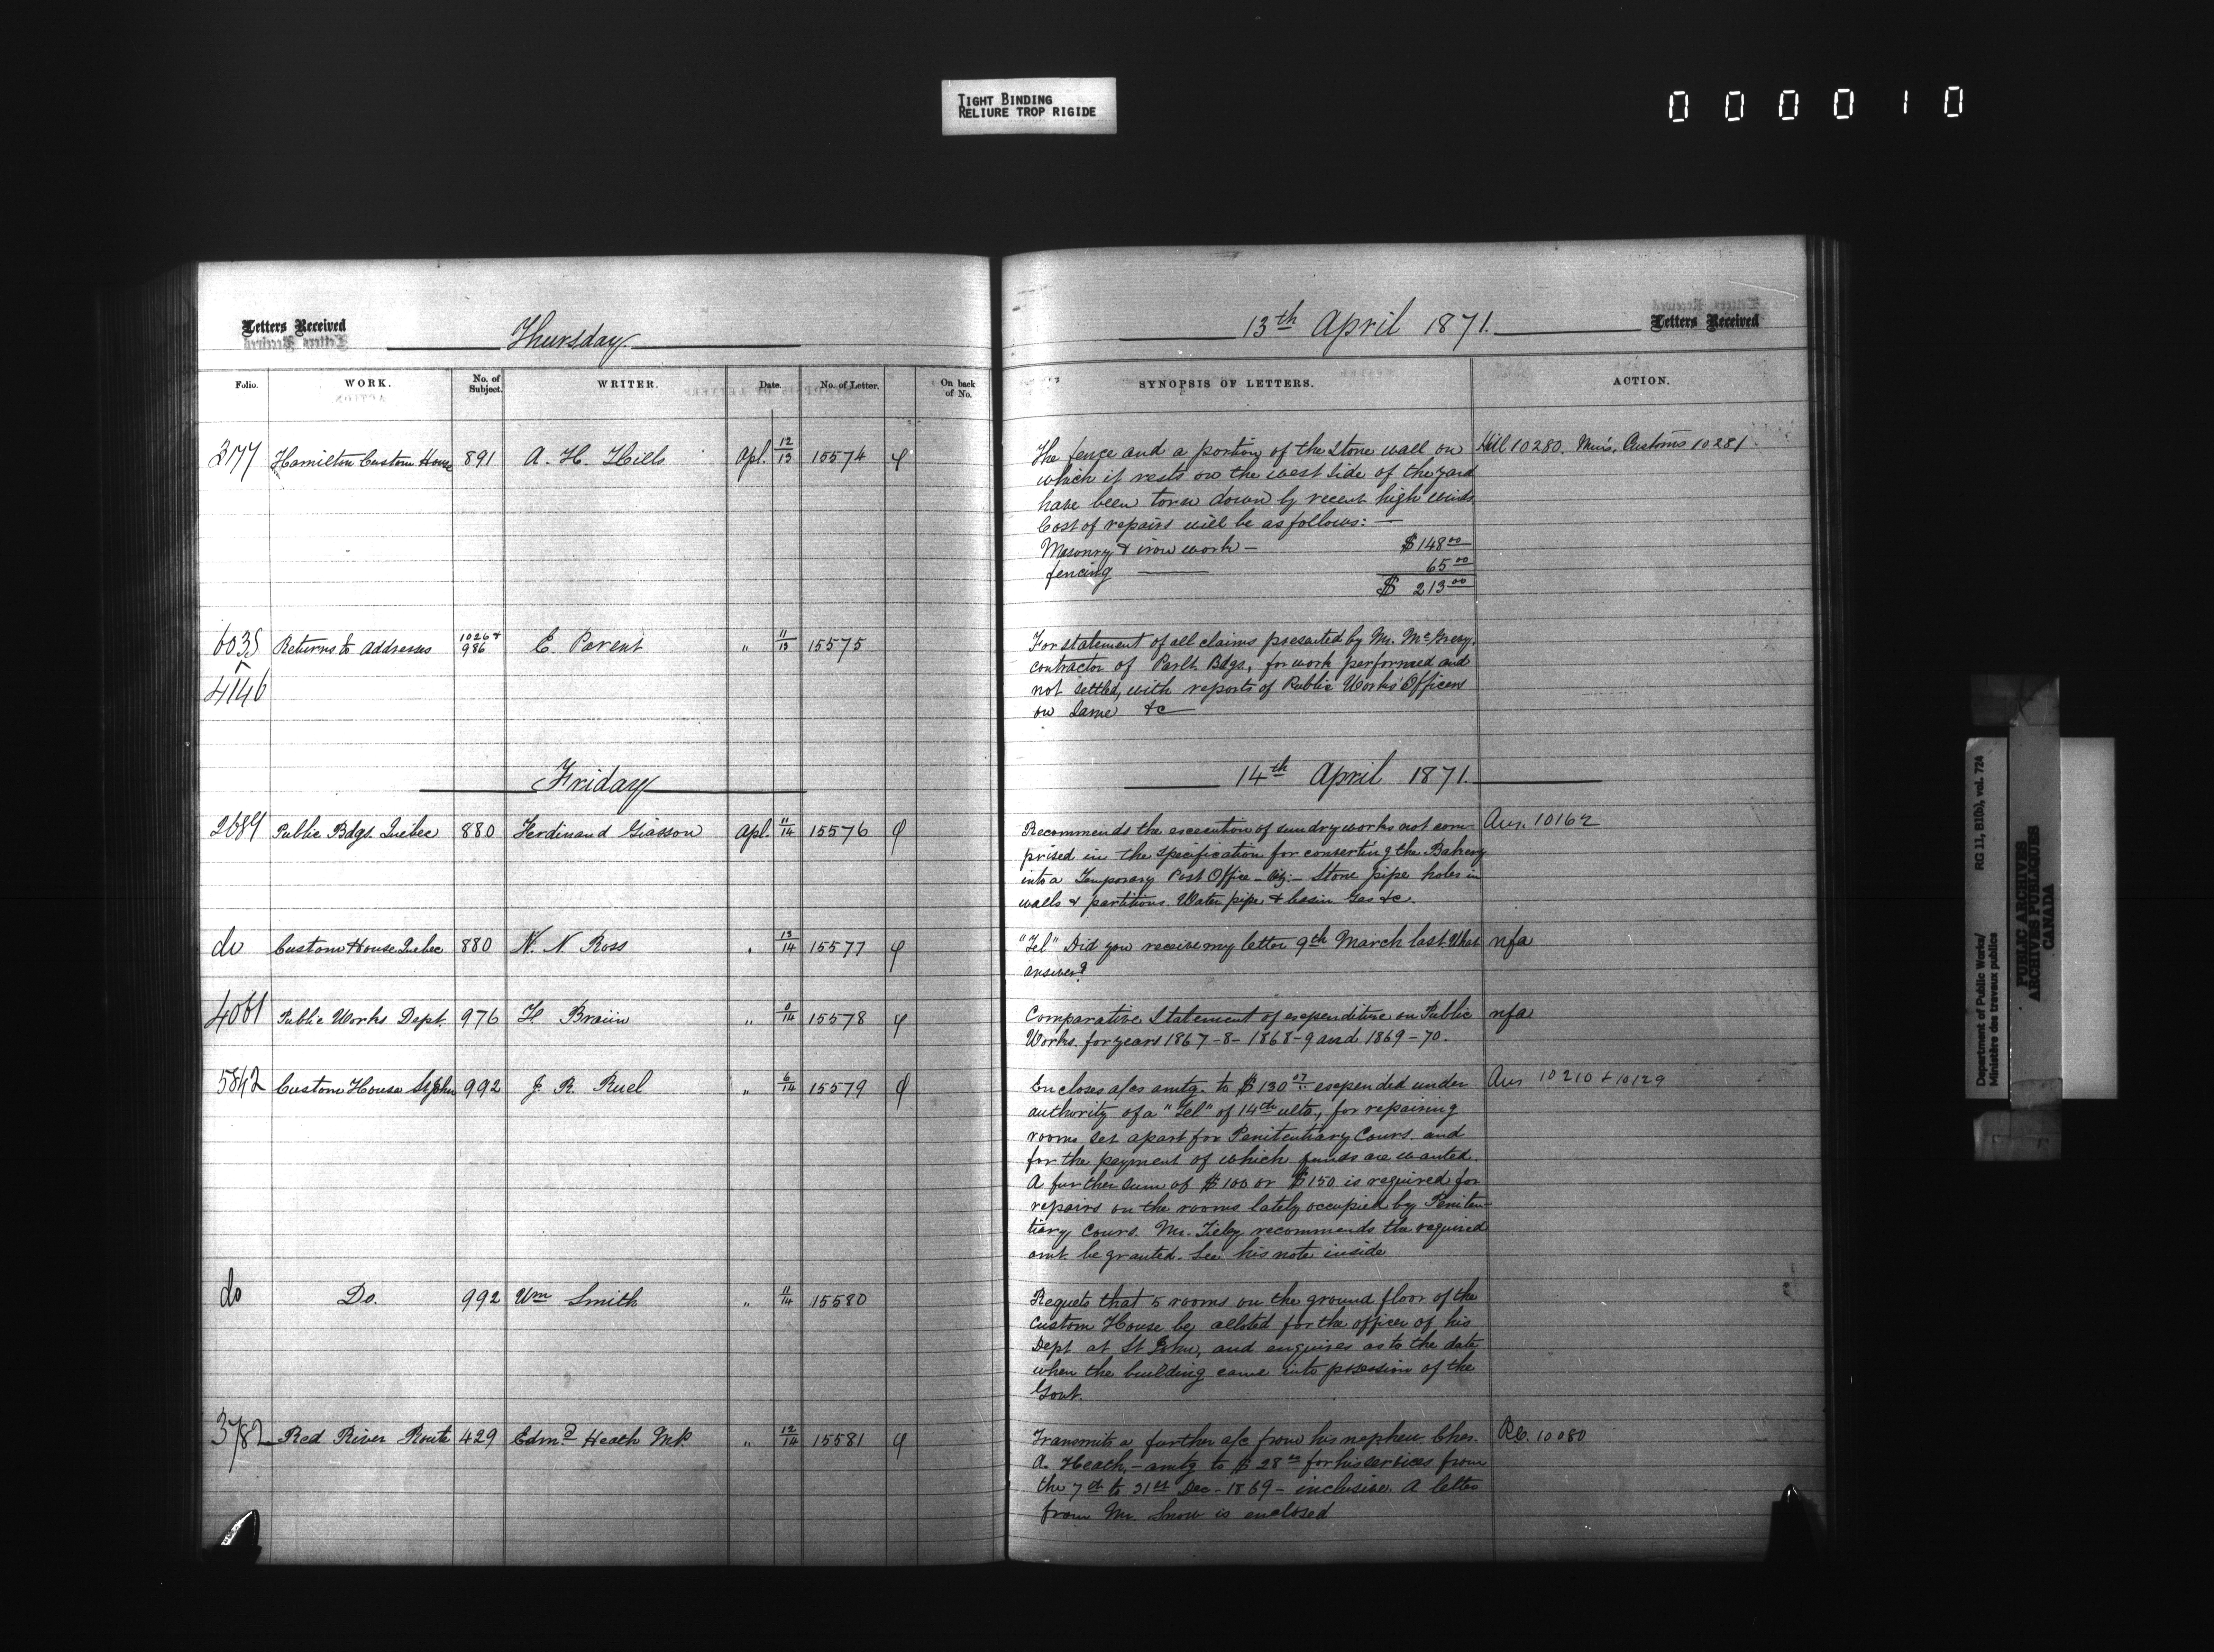 TIGHT BINDING
RELIURE TROP RIGIDE
000010
Letters Received
Thursday
Folio.
WORK.
No. of Subject.
WRITER.
Date.
No. of Letter.
On back of No.
277 Hamilton Custom House 891 A. H. Hills Apl. 12/13 15574 φ
6035 Returns to Addresses 1026 & 986 E. Parent " 11/13 15575
4146
Friday
2689 Public Bdgs. Quebec 880 Ferdinand Giasson Apl. 11/14 15576 φ
do Custom House Quebec 880 N. N Ross " 13/14 15577 φ
4061 Public Works Dept. 976 F. Braün " /14 15578 φ
5842 Custom House St John 992 J. R. Ruel " 6/14 15579 φ
do Do. 992 Wm Smith " 11/14 15580
3782 Red River Route 429 Edmd Heath M.P. " 12/14 15581 φ
13th April 1871.
Letters Received
SYNOPSIS OF LETTERS.
ACTION.
The fence and a portion of the Stone wall on
which it rests on the west side of the yard
have been torn down by recent high winds
Cost of repairs will be as follows: —
Masonry & iron work — $148 00
fencing — 65 00
$ 213 00
Hill 10280. Mins. Customs 10281
For statement of all claims presented by Mr. McGreevy,
contractor of Parlt. Bdgs., for work performed and
not settled, with reports of Public Works Officers
on same &c
14th April 1871.
Recommends the execution of sundry works not com-
prised in the specification for converting the Bakery
into a Temporary Post Office – viz: – Stove pipe holes in
walls & partitions. Water pipe & basin Gas &c.
Ans. 10162
"Tel" Did you receive my letter 9th March last. What
answer?
nfa
Comparative Statement of expenditure on Public
Works. for years 1867-8- 1868-9 and 1869-70.
nfa
Encloses a/cs amtg to $130 07 expended under
authority of a "Tel" of 14th ulto., for repairing
rooms set apart for Penitentiary Comrs. and
for the payment of which funds are wanted.
A further sum of $100 or $150 is required for
repairs on the rooms lately occupied by Peniten-
tiary Comrs. Mr. Tilley recommends the required
amt. be granted. See his note inside
Ans 10210 & 10129
Requets that 5 rooms on the ground floor of the
Custom House be alloted for the officer of his
Dept at St John, and enquires as to the date
when the building came into possession of the
Govt.
Transmits a further a/c from his nephew Chas.
A. Heath, – amtg to $28 for his services from
the 7th to 31st Dec – 1869 – inclusive. A letter
from Mr. Snow is enclosed
10080
Department of Public Works/ RG 11, B1(b), vol. 724
Ministère des travaux publics
PUBLIC ARCHIVES
ARCHIVES PUBLIQUES
CANADA